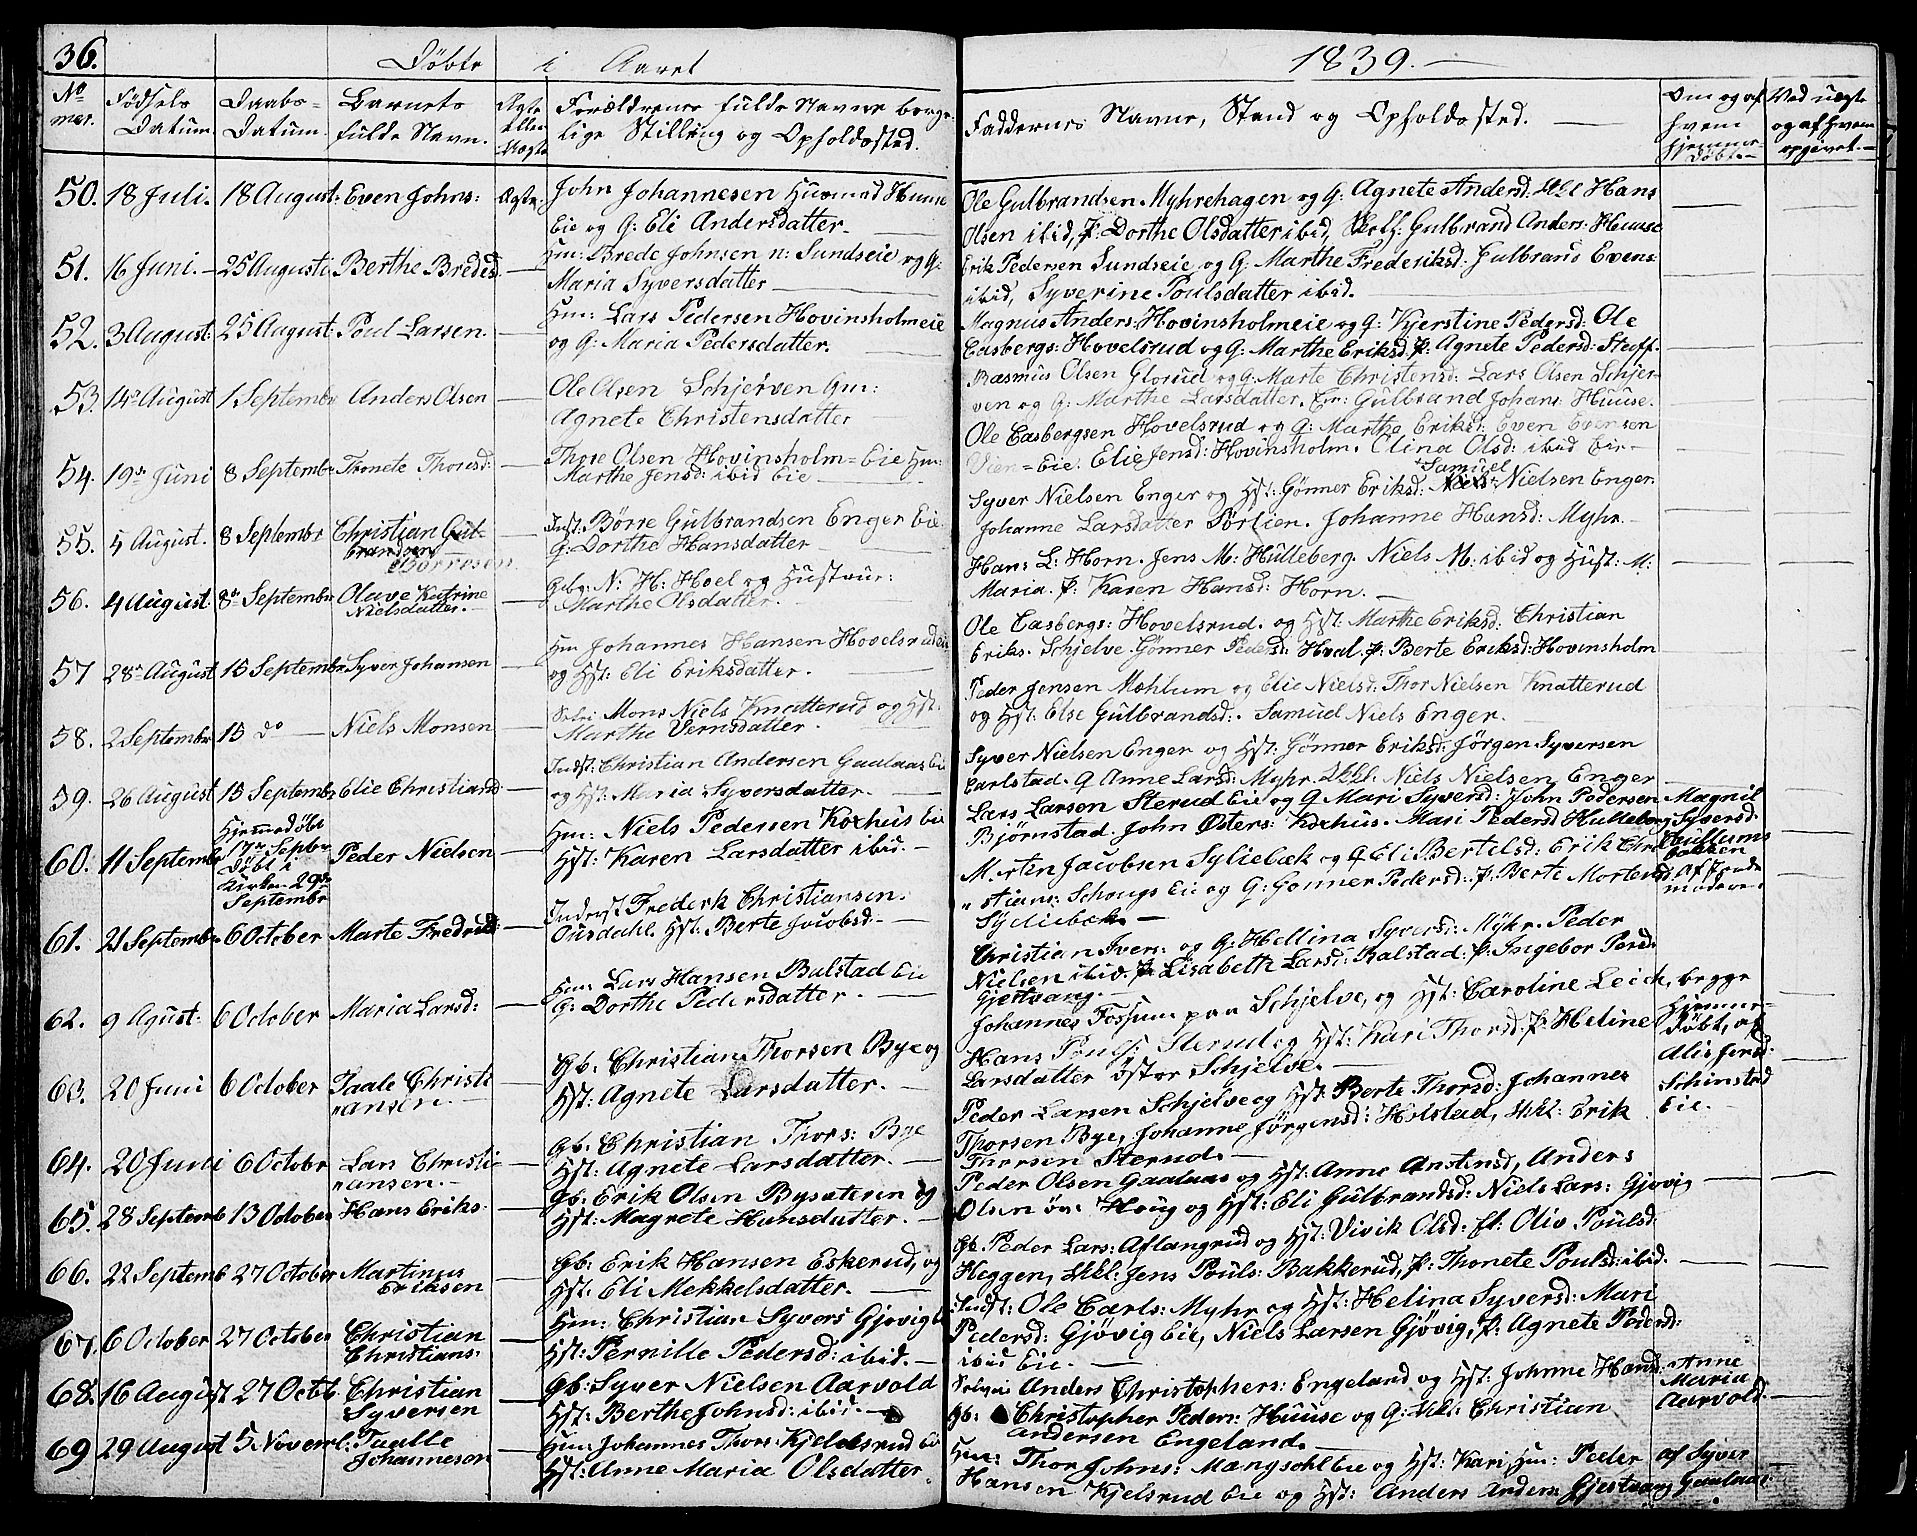 36. Döbte i Aaret 1839.
No mer. Födsels Datum. Daabs Datum. Barnets fulde Navn. Ægte eller Uægte Forældrenes fulde Navne borgerlige Stilling og Opholdssted. Faddernes Navne, Stand og Opholdssted. Om og af hvem hjemmedöbt. Ved uægte og af hvem opgivet.
50. 18 Juli. 18 August. Even Johns: Ægte. John Johannesen Huusmd Huuse
Eie og G: Eli Andersdatter.
Ole Gulbrandsen Myhrehagen og G: Agnete Andersd. Ukl Hans
Olsen ibid, P. Dorthe Olsdatter ibid, Gulbrand Anders: Huuse
51. 16 Juni. 25 August: Berthe Bredesd. Hm: Brede Johnsen n: Sundseie og G:
Maria Syversdatter
Erik Pedersen Sundseie og G: Marthe Frederiksd. Gulbrand Evens:
ibid, Syverine Poulsdatter ibid.
52. 3 August. 25 August: Poul Larsen Hm: Lars Pedersen Hovinsholmeie
og G: Maria Pedersdatter.
Magnus Anders: Hovinsholmeie og G: Kjerstine Pedersd: Ole
Casbergs: Hovelsrud og G: Marthe Eriksd: P: Agnete Pedersd: Steff-
53. 14 August 1 Septembr Anders Olsen Ole Olsen Schjerven Gm:
Agnete Christensdatter
Rasmus Olsen Glorud og G. Marte Christensd: Lars Olsen Schjer-
ven og G: Marthe Larsdatter. Em: Gulbrand Johans: Huuse.
54. 19de Juni 8 Septembr Thonete Thoresd: Thore Olsen Hovinsholm=Eie Hm:
Marthe Jensd: ibid Eie
Ole Casbergsen Hovelsrud og G: Marthe Eriksd: Even Evensen
Vien=Eie. Elie Jensd: Hovinsholm. Elina Olsd: ibid Eie
55. 4 August. 8 Septembr Christian Gul-
brandsen
Börresen
Inst: Börre Gulbrandsen Enger Eie
G: Dorthe Hansdatter
Syver Nielsen Enger og Hst: Gönner Eriksd: Samuel Nielsen Enger.
Johanne Larsdatter Portien. Johanne Hansd: Myhr.
56. 4 August. 8de Septembr Olave Katrine
Nielsdatter.
Gbg: N: H: Hoel og Hustrue:
Marthe Olsdatter.
Hans L: Horn. Jens M: Hulleberg. Niels M: ibid og Hust: M:
Maria. P: Karen Hansd: Horn.
57 28de August 15 Septembr Syver Johansen Hm Johannes Hansen Hovelsrudeie
og Hst: Eli Eriksdatter.
Ole Casbergs: Hovelsrud. og Hst: Marthe Eriksd: Christian
Eriks. Schjelve. Gönner Pedersd: Hval. P: Berte Eriksd: Hovinsholm
58. 2 Septembr 15 do Niels Monsen Selvei Mons Niels Knatterud og Hst:
Marthe Vernsdatter.
Peder Jensen Mæhlum og Elie Nielsd: Thor Nielsen Knatterud
og Hst: Else Gulbrandsd:. Samuel Niels Enger.
59. 26 August 15 Septembr Elie Christiansd Indst: Christian Andersen Gaalaas Eie
og Hst: Maria Syversdatter.
Syver Nielsen Enger og Hst: Gönner Eriksd: Jörgen Syversen
Carlstad. G Anne Larsd: Myhr. Ukl. Niels Nielsen Enger
60. 11 Septembr Hjemmedöbt
17de Septbr
Döbt i
Kirken 29de
Septembr
Peder Nielsen Hm: Niels Pedersen Korhus Eie
Hst: Karen Larsdatter ibid.
Lars Larsen Sterud Eie og G Mari Syversd: John Pedersen
Björnstad. John Östers: Korhus. Mari Pedersd Hulleberg
Magnil
Syversd:
Gullums
bakken
61. 21 Septembr 6 October Marte Fredriksd: Inderst Frederk Christiansen.
Ousdahl. Hst: Berte Jacobsd.
Morten Jacobsen Syliebæk og G Eli Bertelsd: Erik Chri-
stians: Schougs Eie og G: Gonner Pedersd: P: Berte Mortensd:
Syliebek.
62. 9 Agust. 6 October Maria Larsd: Hm: Lars Hansen Balstad Eie
G: Dorthe Pedersdatter.
Christian Ivers: og G: Hellina Syversd: Myhr. Peder
Nielsen ibid. P: Lisabeth Larsd: Balstad. P: Ingebor Persd:
Gjestvang.
63. 20 Juni 6 October Paale Christi
ansen.
Gb. Christian Thorsen Bye og
Hst: Agnete Larsdatter.
Johannes Fossum paa Schjelve, og Hst: Caroline Leich,
Hans Pouls: Sterud og Hst: Kari Thorsd: P: Heline
Larsdatter öster Schjelve.
begge
hjemme-
döbt, af
Alis Jensd:
Schinstad
Eie.
64. 20 Juni 6 Octobr Lars Christi-
ansen.
Gb: Christian Thors: Bye
Hst: Agnete Larsdatter.
Peder Larsen Schjelve og Hst: Berte Thorsd: Johannes
Thorsen Bye, Johanne Jörgensd: Holstad, Ukl: Erik
Thorsen Sterud.
65. 28 Septemb 13 October Hans Eriks. Gb: Erik Olsen Bysæteren og
Hst: Magrete Hansdatter.
Peder Olsen Gaalaas og Hst: Anne Anstensd, Anders
Olsen ön: Houg og Hst: Eli Gulbrandsd: Niels Lars: Gjövig
66. 22 Septemb 27 October Martinus
Eriksen
Gb: Erik Hansen Eskerud, og
Hst: Eli Mekkelsdatter.
Gb. Peder Lars: Aflangrud og Hst: Vivik Olsd: P: Oliv Poulsd:
Heggen, Ukl: Jens Pouls: Bakkerud, P: Thonete Poulsd: ibid.
67. 6 October 27 October Christian
Christians:
Hm: Christian Syvers Gjövig Eie
Hst: Pernille Pedersd: ibid.
Indst: Ole Carls: Myhr og Hst: Helina Syversd: Mari
Pedersd: Gjövig Eie, Niels Larsen Gjövig, P: Agnete Pedersd:
ibid Eie.
68. 16 August 27 Octb Christian
Syversen
Gb: Syver Nielsen Aarvold
Hst: Berthe Johnsd: ibid.
Selvei Anders Christophers: Engeland og Hst: Johnne Hansd:
Gb: Christopher Peders: Huuse og G: Ukl: Christian
Andersen Engeland.
Anne
Maria
Aarvold.
69 29 August 5 Novem Paalle
Johannesen
Hm: Johannes Thors: Kjelsrud Eie
Hst: Anne Maria Olsdatter.
Hm: Thor Johns: Mængsohl Eie og Hst: Kari, Hm: Peder
Hansen Kjelsrud Eie og Hst: Anders Anders: Gjestvang
af Syver
Gaalaas: